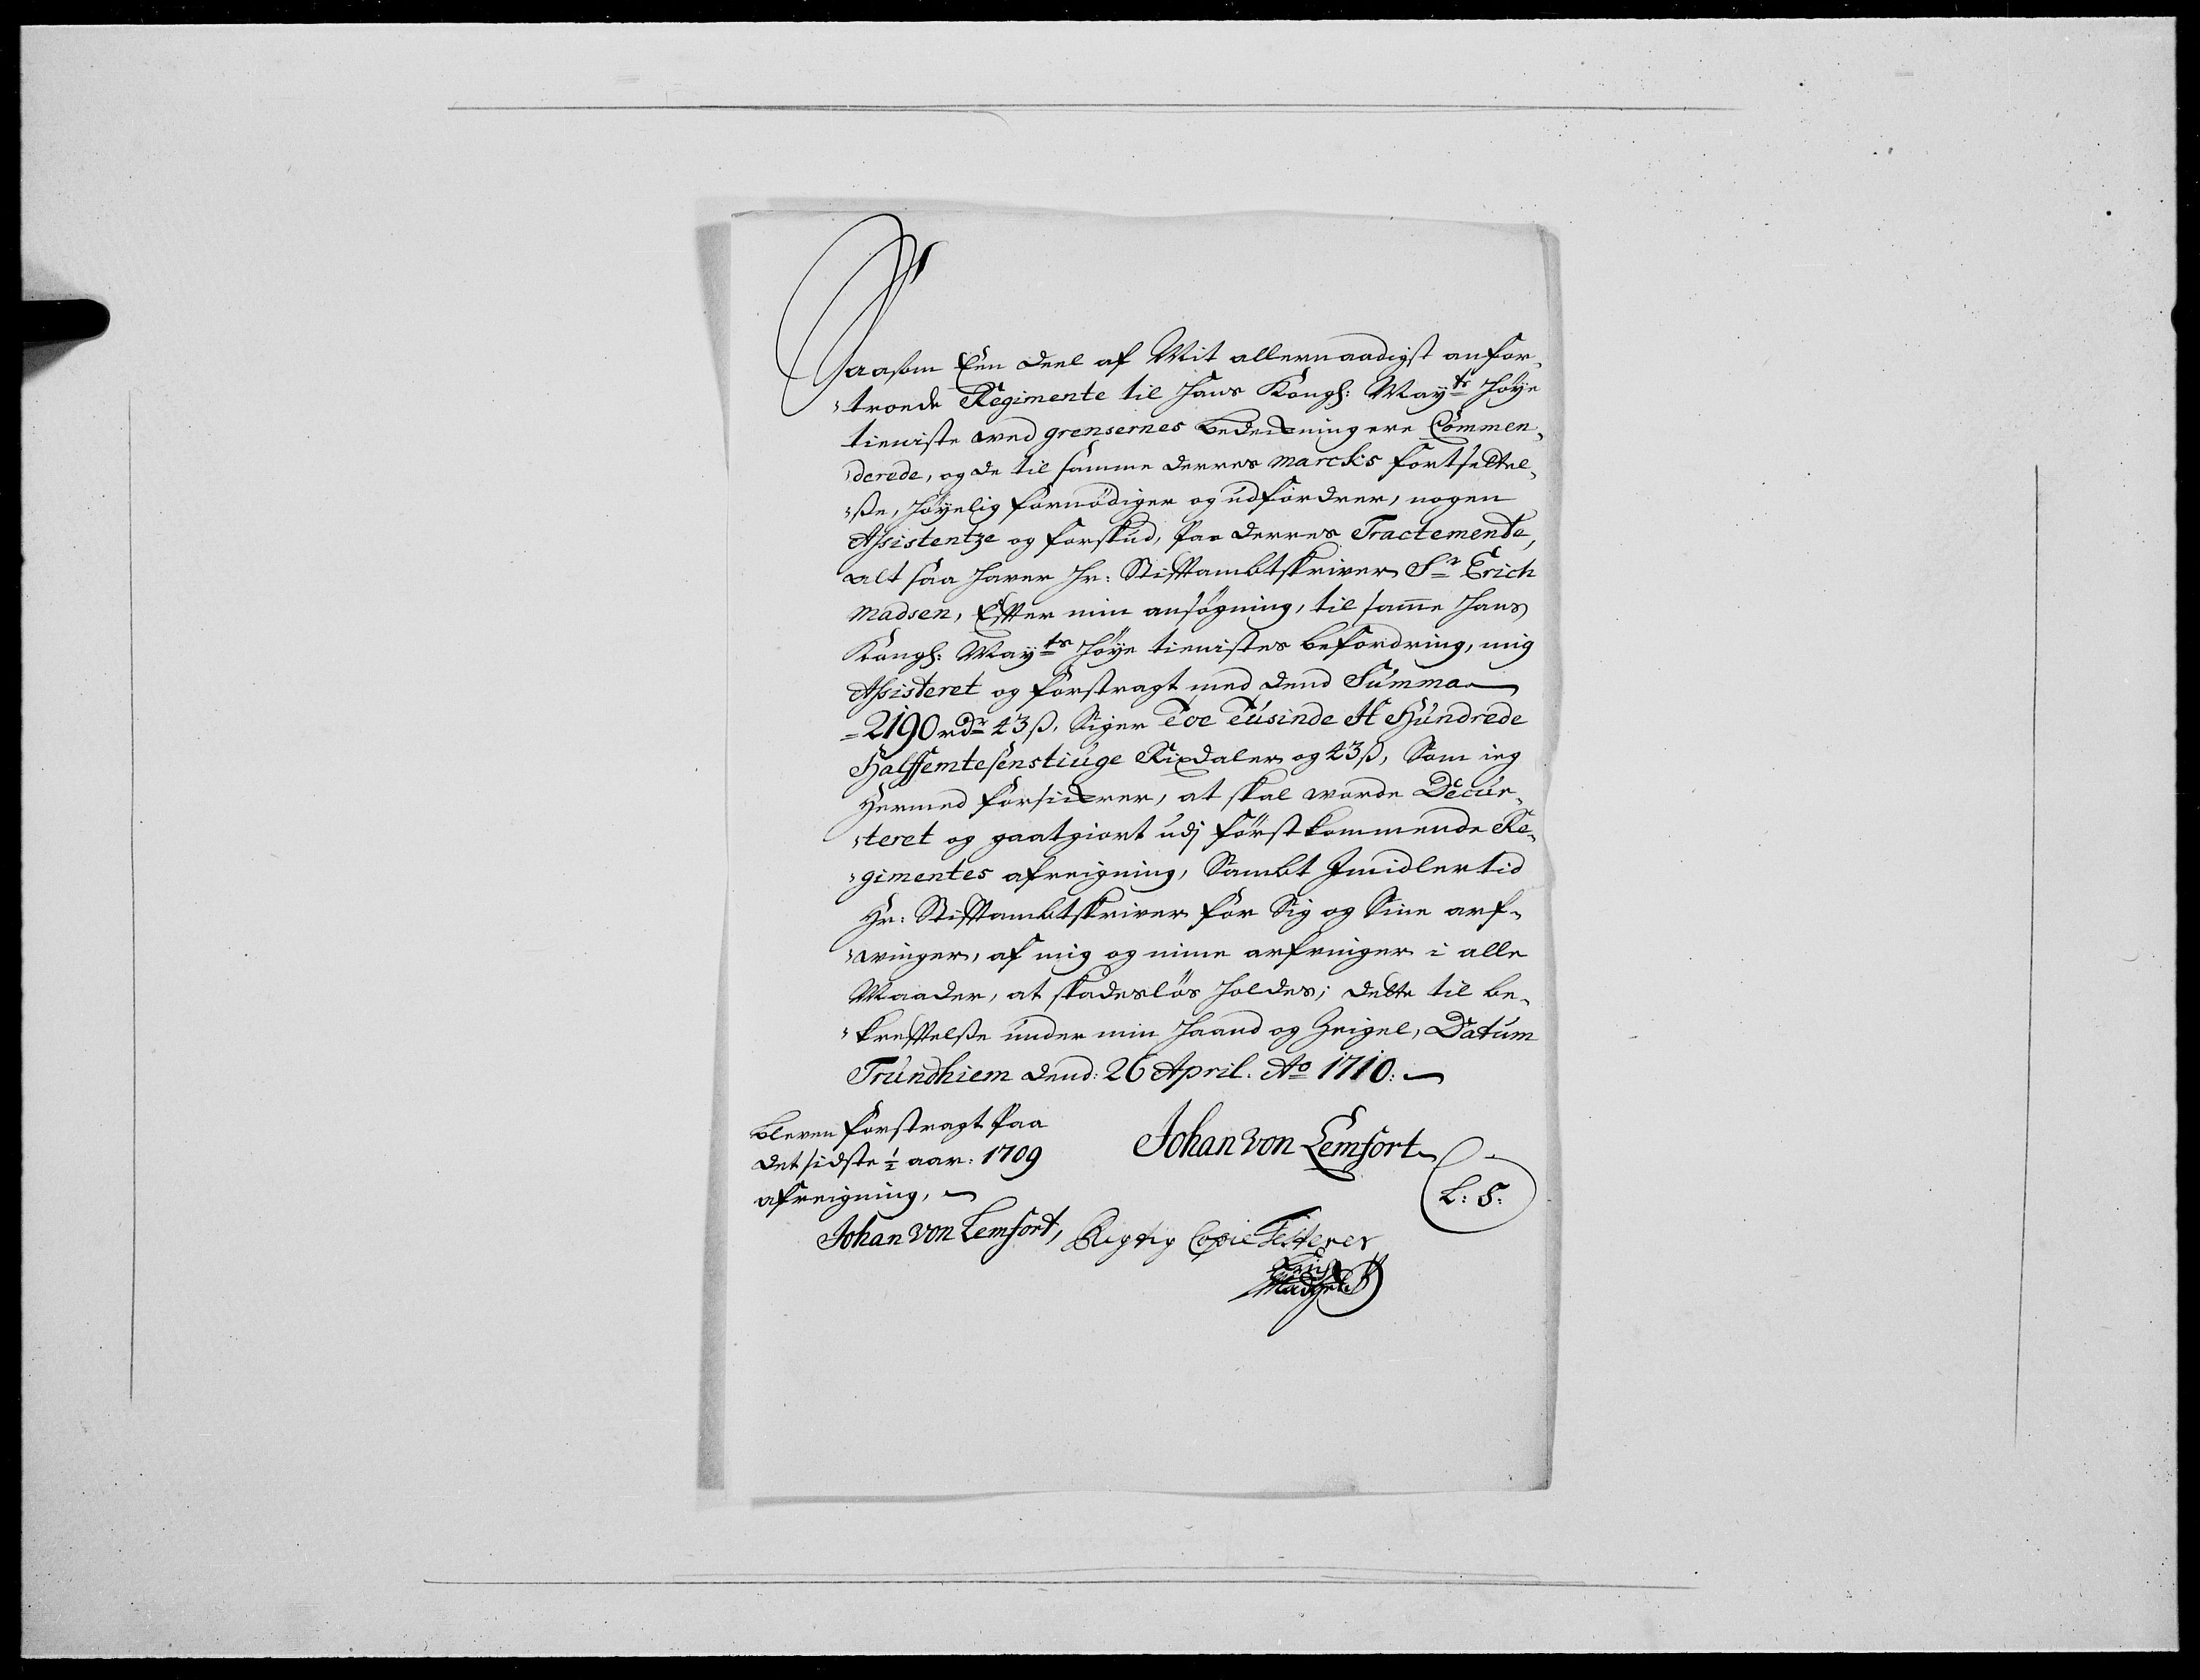 Saasom Een Deel af Mit allernaadigst anfor-
troede Regimente til Hans Kongl: Mayts Høye
tieniste ved grensernes bedeckning ere Commen-
derede, og de til samme derres marck's fortsettel-
se, Høyelig fornødiger og udfordrer, nogen
Assistentze og forskud, Paa derres Tractemente,
alt saa haver Hr: Stifftambtskriver Sr Erich
Madsen, Effter min ansøgning, til samme Hans
Kongl: Mayts Høye tienistes befordring, mig
Assisteret og forstragt med dend Summa
2190 rdr 43 ß, Siger Toe Tusinde Et Hundrede
Halffemtesenstiuge Rixdaler og 43 ß, Som ieg
Hermed forsickrer, at skal worde Decur-
teret og gaatgiort udj førstkommende Re-
gimentes afreigning, Sambt Imidlertid
Hr: Stifftambtskriver for Sig og Sine arf-
winger, af mig og mine arfvinger i alle
Maader, at skadesløs holdes; dette til be-
krefftelse under min Haand og Zeigel, Datum
Trundhiem dend: 26 April. Ao 1710:
Bleven forstragt Paa
det sidste ½ aar: 1709
afreigning,
Johan von Lemfort
L: S:
Johan von Lemfort,
Rigtig Copie Testerer
Erich
Madsen